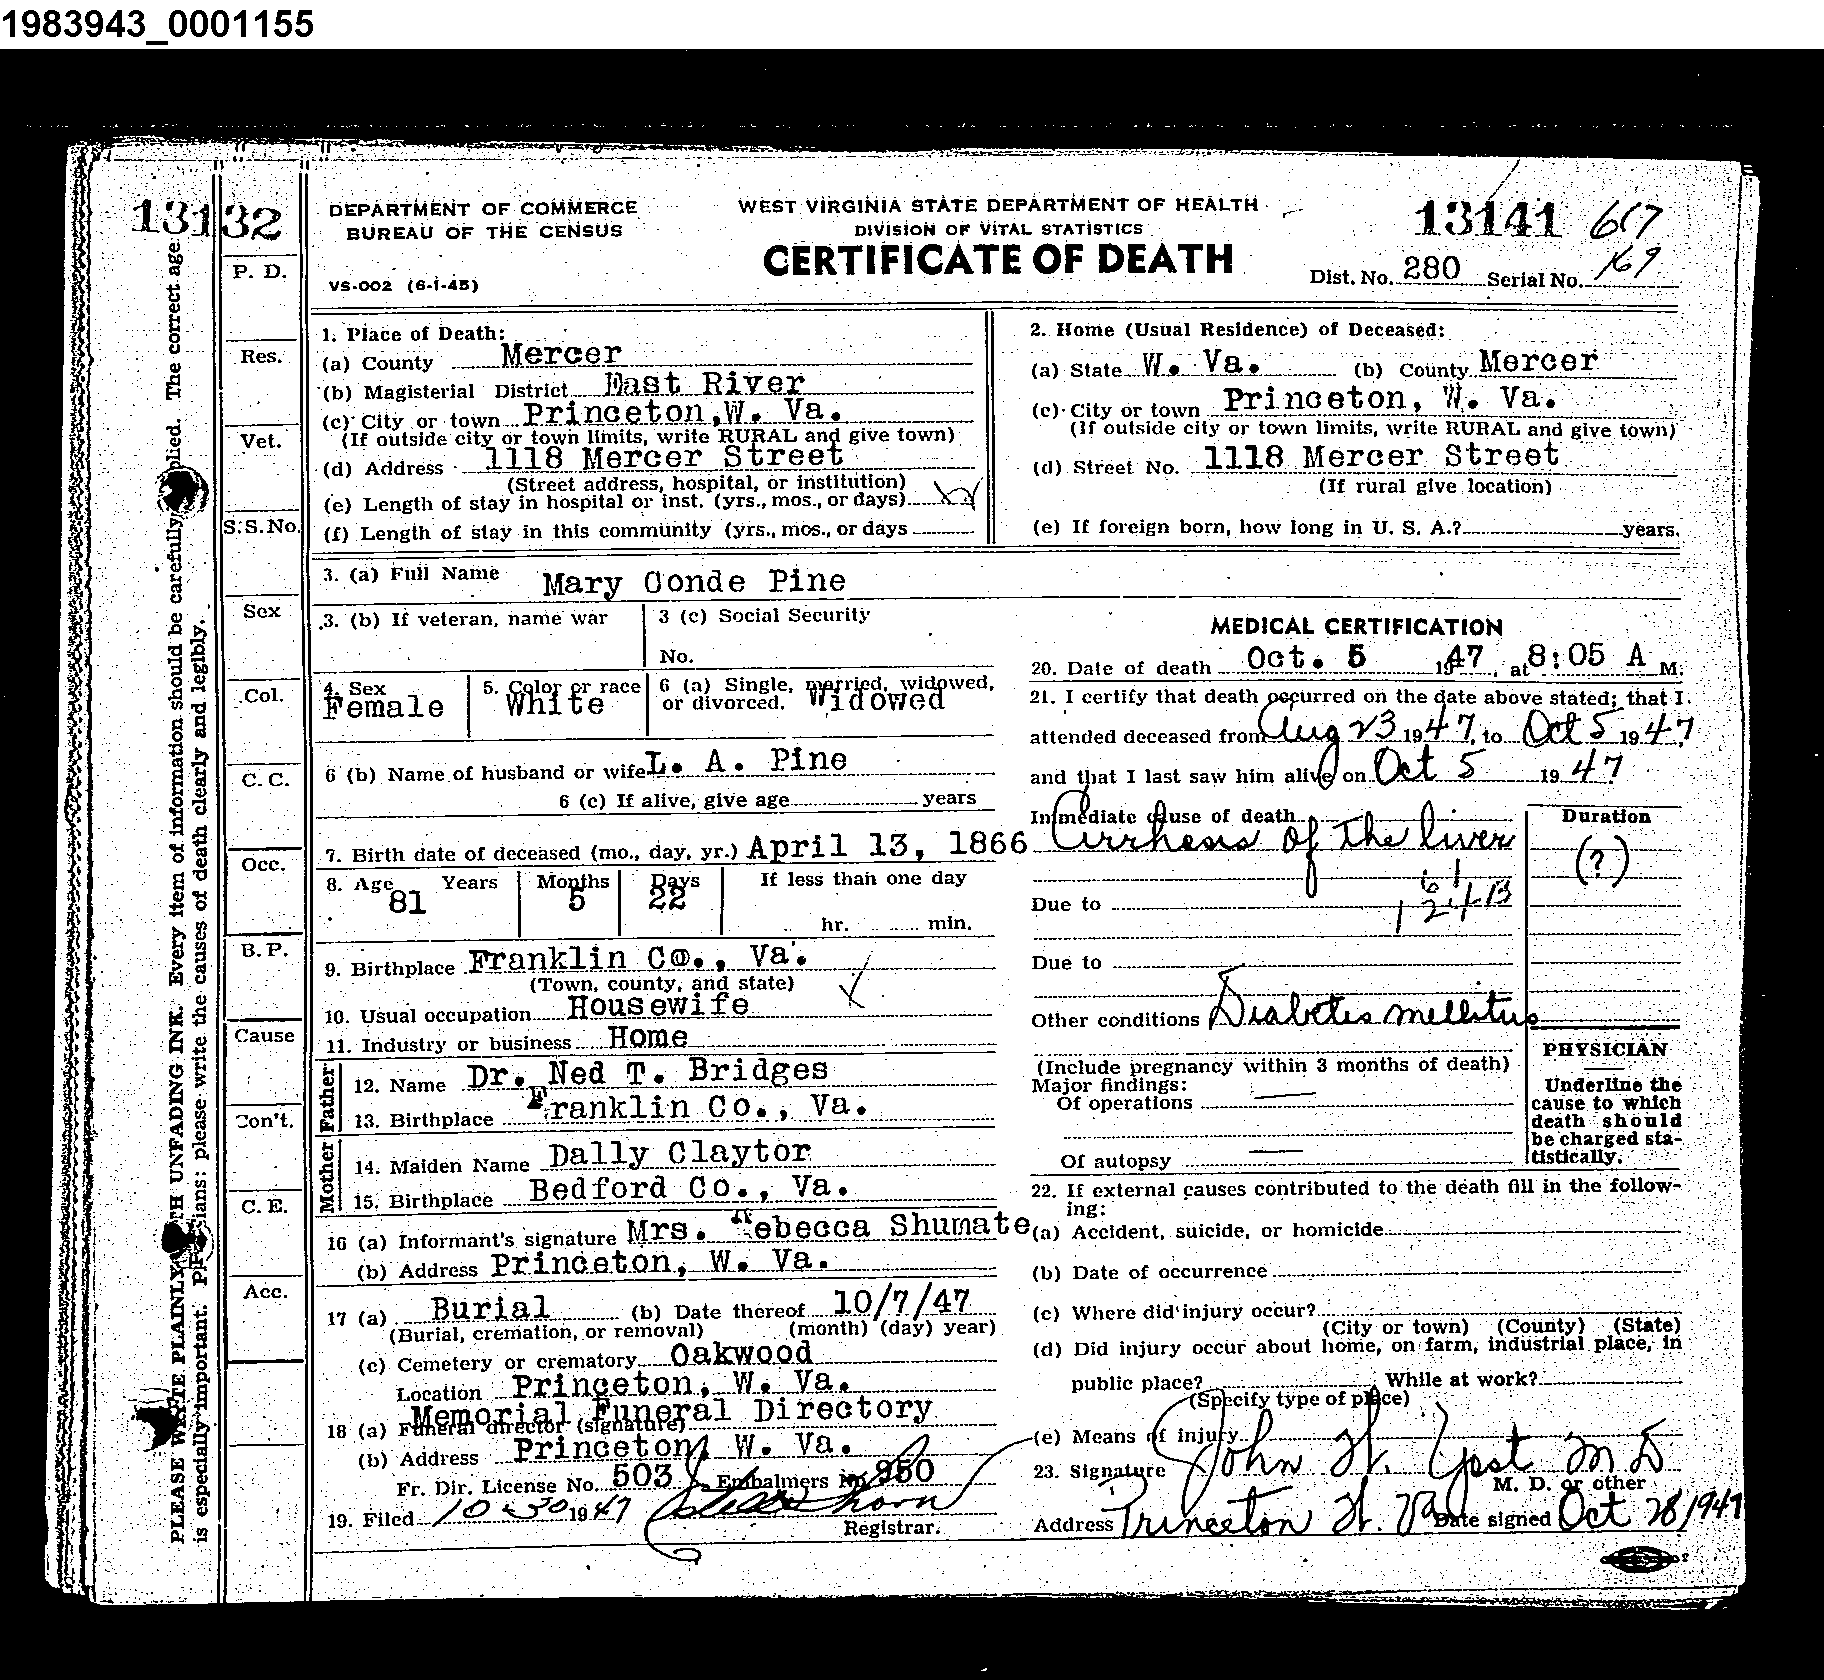 1983943_0001155
13132
DEPARTMENT OF COMMERCE
BUREAU OF THE CENSUS
VS-002 (6-1-45)
WEST VIRGINIA STATE DEPARTMENT OF HEALTH
DIVISION OF VITAL STATISTICS
CERTIFICATE OF DEATH
13141 617
Dist. No. 280 Serial No. 169
PLEASE WRITE PLAINLY WITH UNFADING INK. Every item of information should be carefully supplied. The correct age
is especially important. Physicians: please write the causes of death clearly and legibly.
P. D.
Res.
Vet.
S.S.No.
Sex
Col.
C. C.
Occ.
B. P.
Cause
Con't.
C. E.
Acc.
1. Place of Death:
(a) County Mercer
(b) Magisterial District East River
(c) City or town Princeton,W. Va.
(If outside city or town limits, write RURAL and give town)
(d) Address 1118 Mercer Street
(Street address, hospital, or institution)
(e) Length of stay in hospital or inst. (yrs., mos., or days)
(f) Length of stay in this community (yrs., mos., or days
2. Home (Usual Residence) of Deceased:
(a) State W. Va. (b) County Mercer
(c) City or town Princeton, W. Va.
(If outside city or town limits, write RURAL and give town)
(d) Street No. 1118 Mercer Street
(If rural give location)
(e) If foreign born, how long in U. S. A.? years.
3. (a) Full Name Mary Conde Pine
3. (b) If veteran, name war
3 (c) Social Security
No.
4. Sex Female
5. Color or race White
6 (a) Single, married, widowed,
or divorced. Widowed
6 (b) Name of husband or wife L. A. Pine
6 (c) If alive, give age years
7. Birth date of deceased (mo., day, yr.) April 13, 1866
8. Age Years Months Days If less than one day
81 5 22
hr. min.
9. Birthplace Franklin Co., Va.
(Town, county, and state)
10. Usual occupation Housewife
11. Industry or business Home
Father
12. Name Dr. Ned T. Bridges
13. Birthplace Franklin Co., Va.
Mother
14. Maiden Name Dally Claytor
15. Birthplace Bedford Co., Va.
16 (a) Informant's signature Mrs. Rebecca Shumate
(b) Address Princeton, W. Va.
17 (a) Burial (b) Date thereof 10/7/47
(Burial, cremation, or removal) (month) (day) year)
(c) Cemetery or crematory Oakwood
Location Princeton, W. Va.
18 (a) Funeral director (signature) Memorial Funeral Directory
(b) Address Princeton, W. Va.
Fr. Dir. License No. 503 Embalmers No. 950
19. Filed 10-30 1947
Registrar.
MEDICAL CERTIFICATION
20. Date of death Oct. 5 1947, at 8:05 A M.
21. I certify that death occurred on the date above stated; that I
attended deceased from Aug 23 1947, to Oct 5 1947
and that I last saw him alive on Oct 5 1947
Immediate cause of death
Cirrhosis of the liver
Duration
(?)
Due to
Due to
Other conditions Diabetes mellitus
(Include pregnancy within 3 months of death)
Major findings:
Of operations —
Of autopsy —
PHYSICIAN
Underline the
cause to which
death should
be charged sta-
tistically.
22. If external causes contributed to the death fill in the follow-
ing:
(a) Accident, suicide, or homicide
(b) Date of occurrence
(c) Where did injury occur?
(City or town) (County) (State)
(d) Did injury occur about home, on farm, industrial place, in
public place? While at work?
(Specify type of place)
(e) Means of injury
23. Signature John W. Yost M D
M. D. or other
Address Princeton W. Va Date signed Oct 28 1947